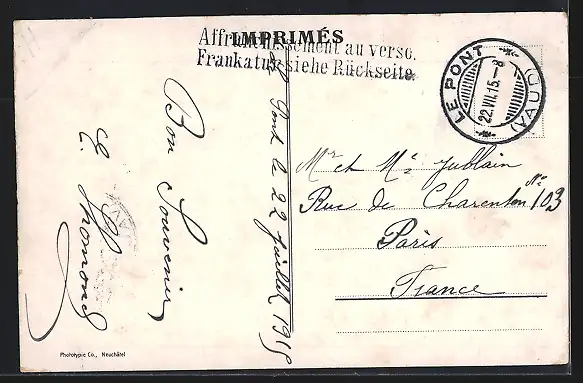 IMPRIMÉS
Affranchissement au verso.
Frankatur siehe Rückseite.
LE PONT
22.VII.15.–8
(VAUD)
Le Pont le 22 juillet 1915
Bon Souvenir
E. Thomond
Mr et Me Jublain
Rue de Charenton No 103
Paris
France
Phototypie Co., Neuchâtel